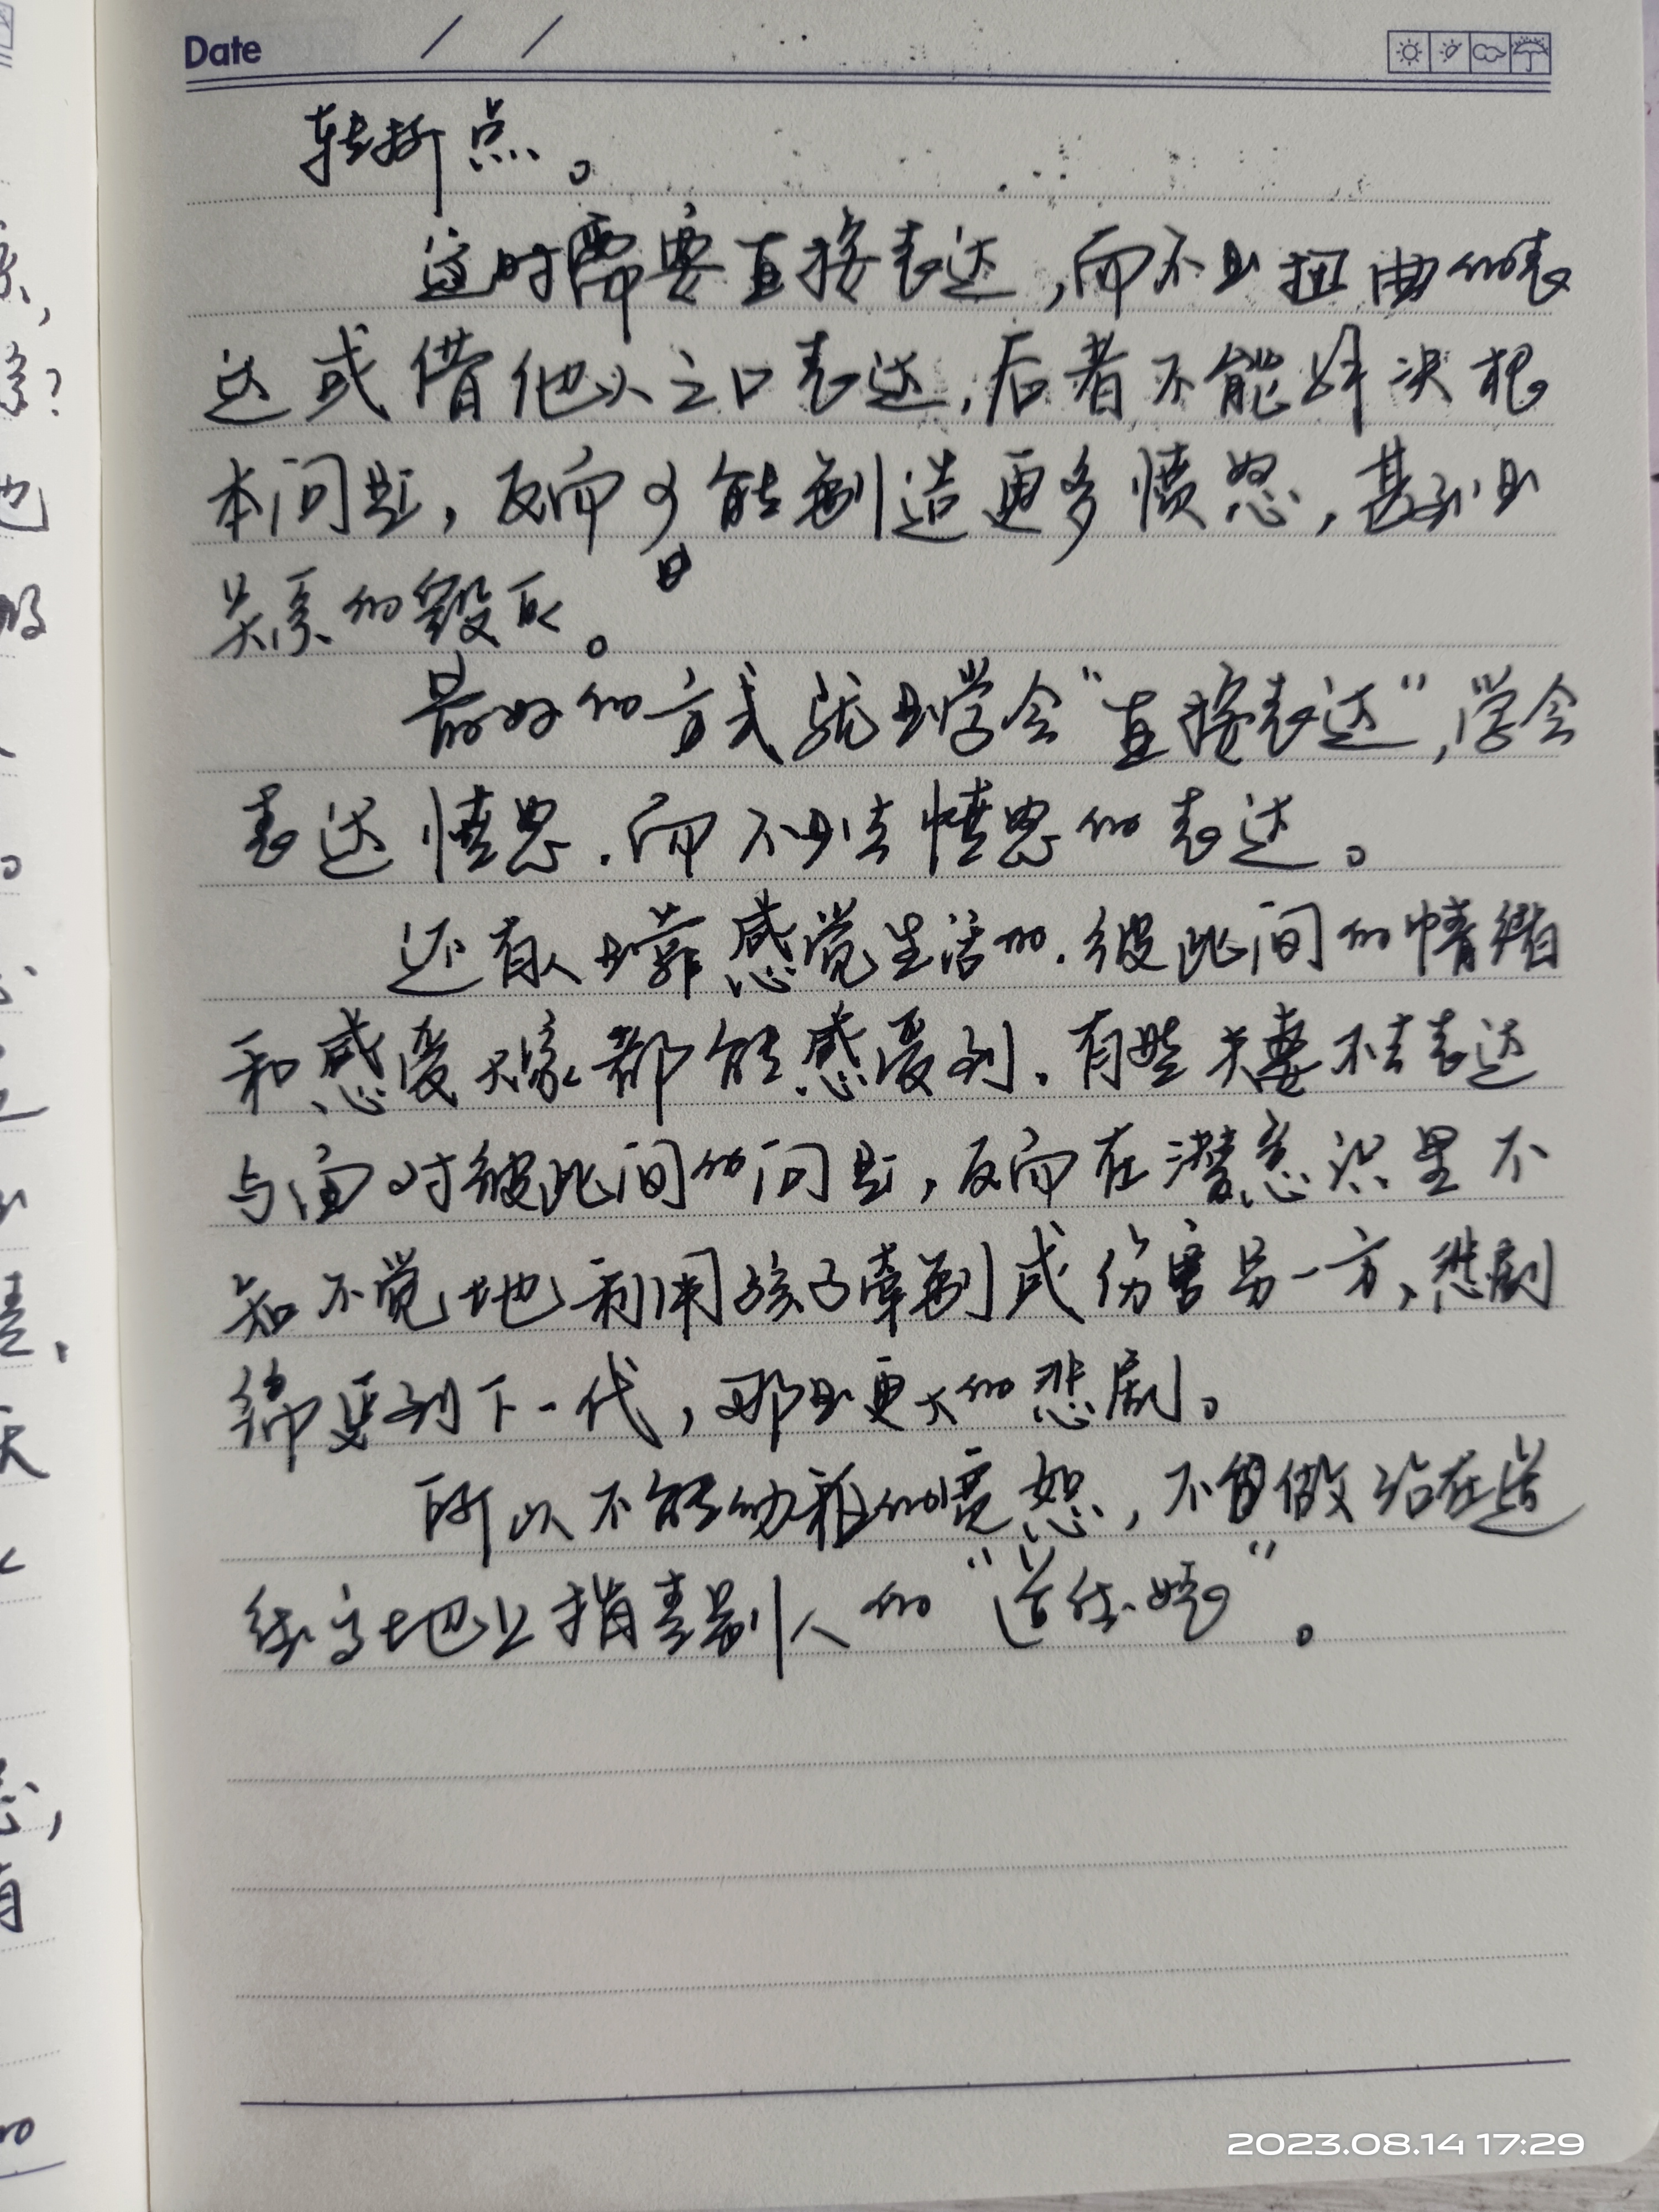 Date / /
转折点。
这时需要直接表达，而不是扭曲的表
达或借他人之口表达，后者不能解决根
本问题，反而可能制造更多愤怒，甚至是
关系的毁灭。
最好的方式就是学会“直接表达”，学会
表达愤怒，而不是去愤怒的表达。
还有人是靠感觉生活的，彼此间的情绪
和感受大家都能感受到，有些夫妻不去表达
与面对彼此间的问题，反而在潜意识里不
知不觉地利用孩子牵制或伤害另一方，悲剧
绵延到下一代，那是更大的悲剧。
所以不能幼稚的宽恕，不做站在道
德高地上指责别人的“道德婊”。
2023.08.14 17:29